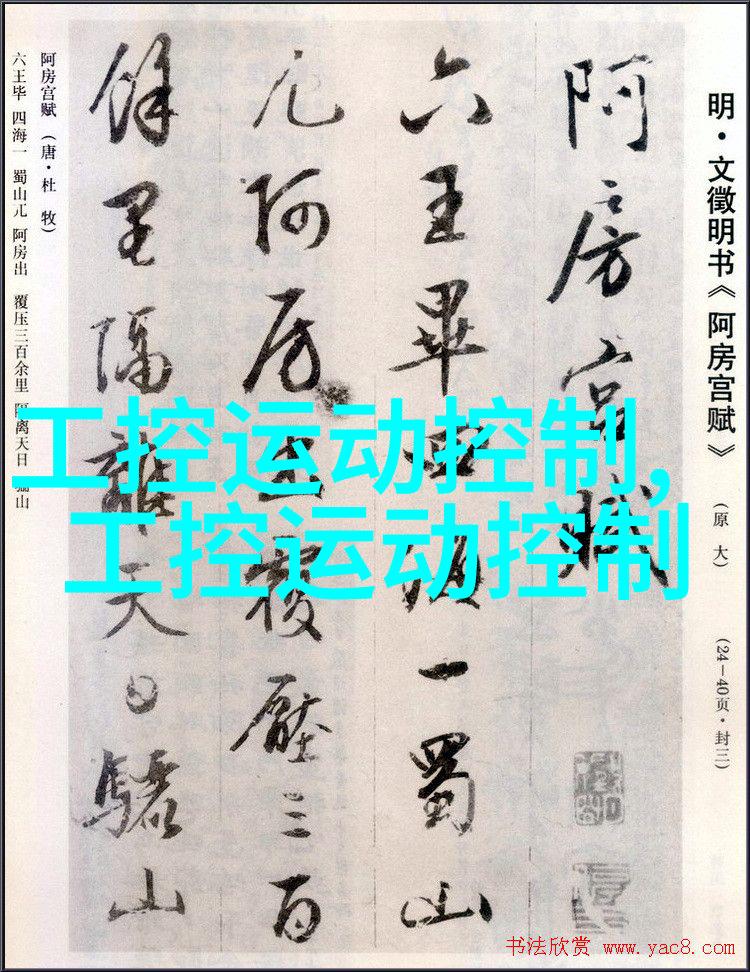 明·文徵明书《阿房宫赋》 (原大) (24—40页·封三)
阿房宫賦
六王畢四海一蜀山
兀阿房出覆壓三百
餘里隔離天日驪山
阿房宫赋(唐·杜牧)
六王毕 四海一 蜀山兀 阿房出 覆压三百余里 隔离天日 骊山
工控运动控制,
工控运动控制
书法欣赏 www.yac8.com